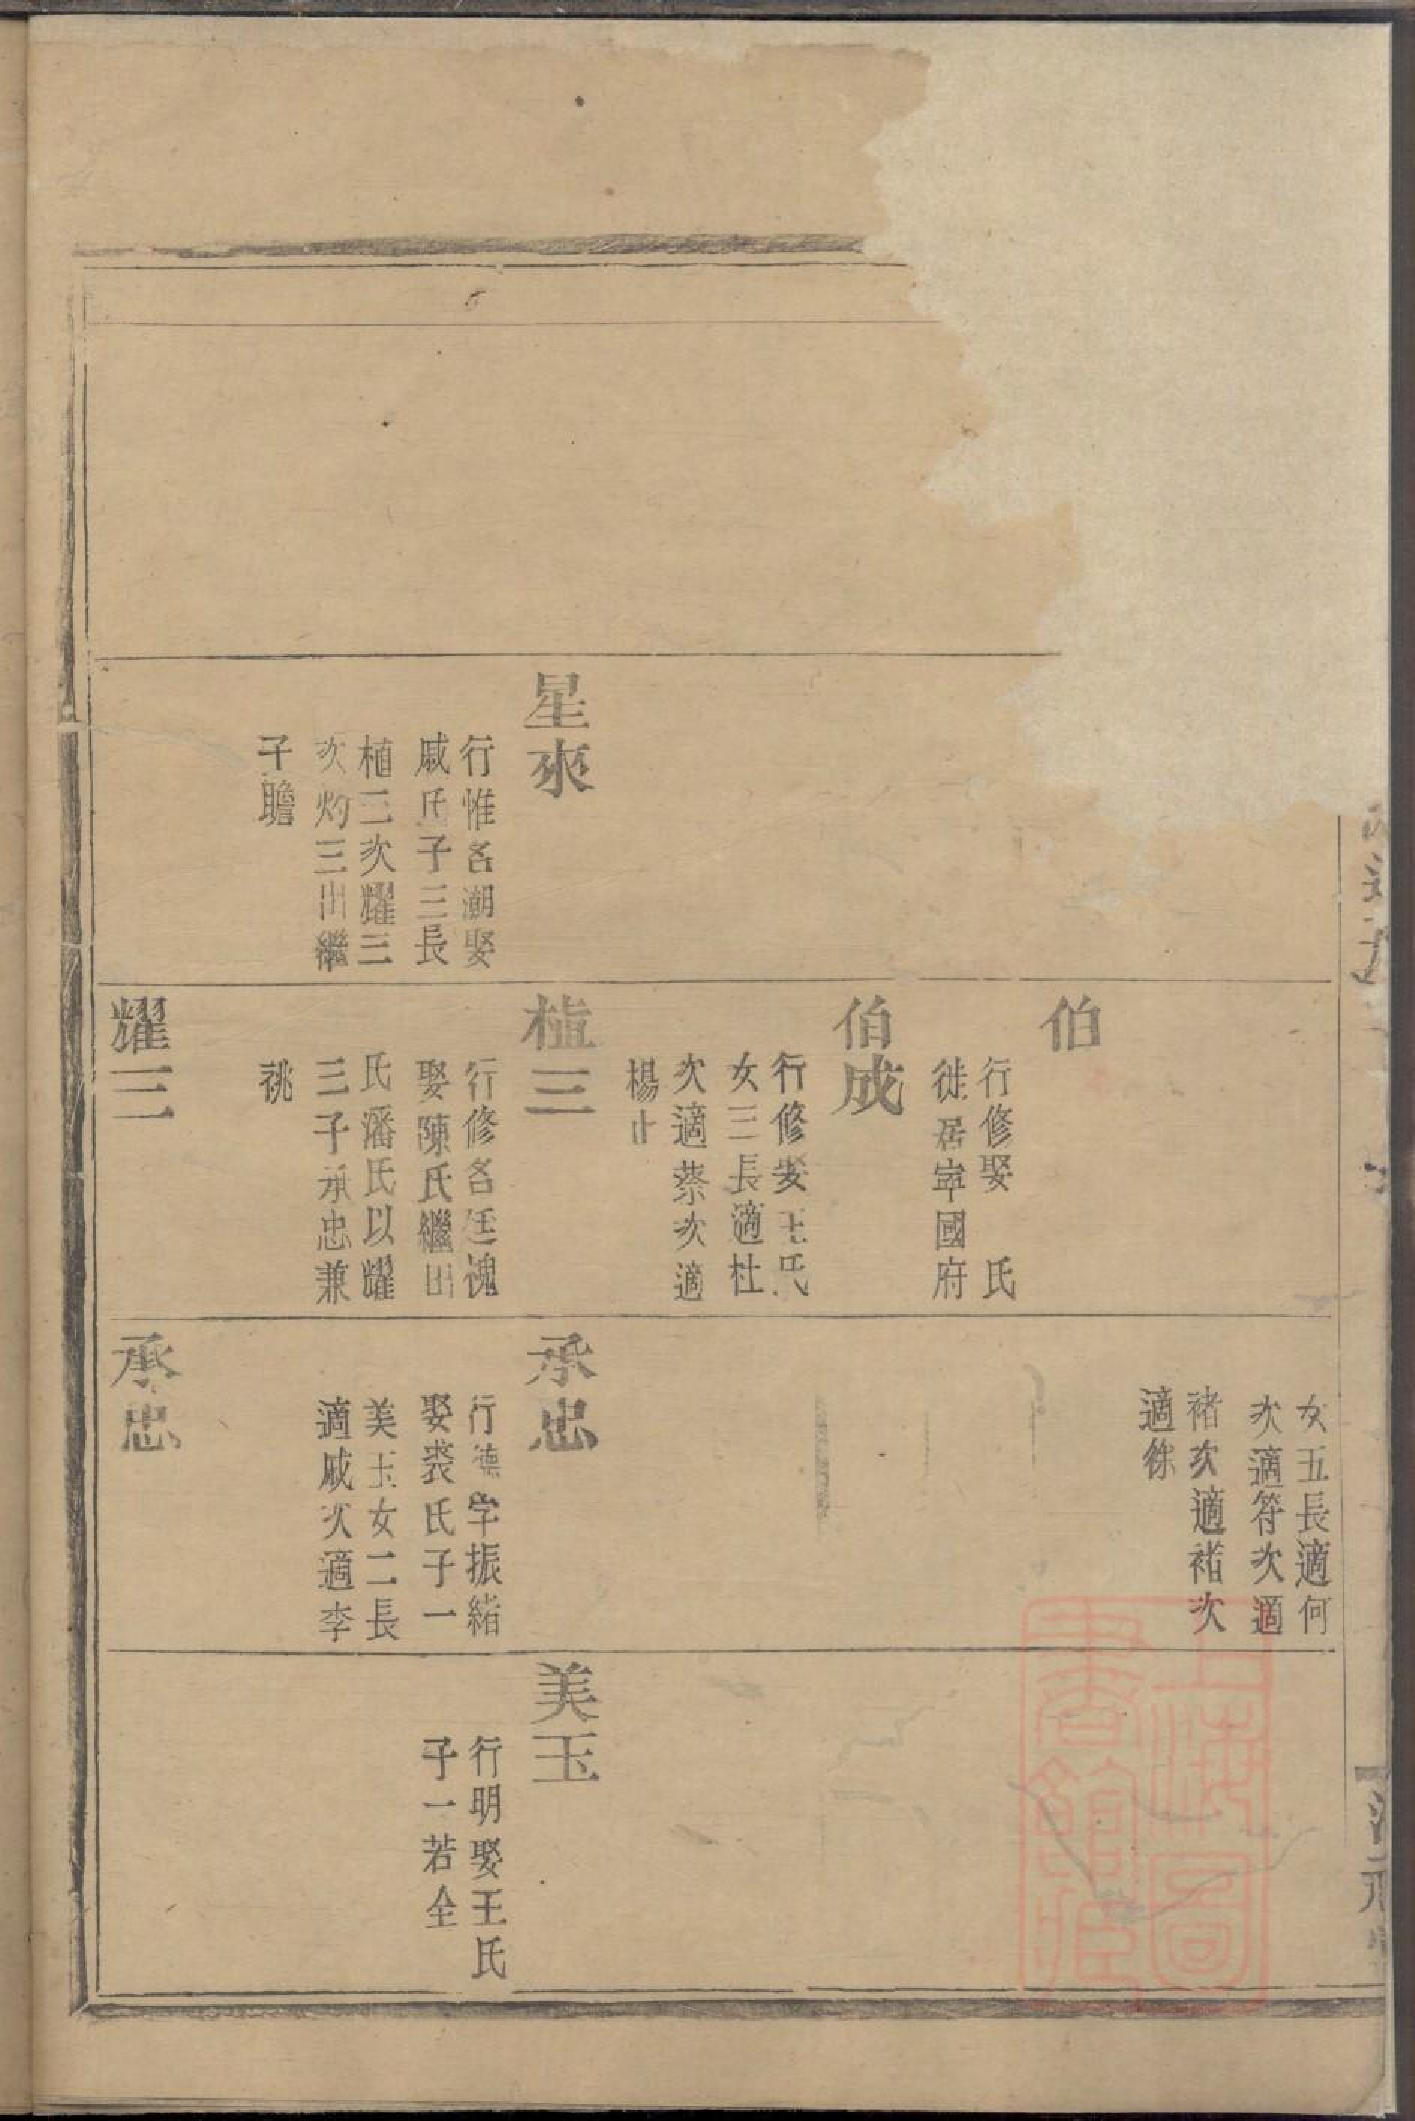 星來
行惟名潮娶
戚氏子三長
植三次耀三
次灼三出繼
子瞻
伯
行修娶　氏
徙居寧國府
伯成
行修娶王氏
女三長適杜
次適蔡次適
楊止
植三
行修名廷槐
娶陳氏繼田
氏潘氏以耀
三子承忠兼
祧
耀三
女五長適何
次適符次適
褚次適褚次
適徐
承忠
行德字振緒
娶裘氏子一
美玉女二長
適戚次適李
承忠
美玉
行明娶王氏
子一若全
上海圖
書館藏